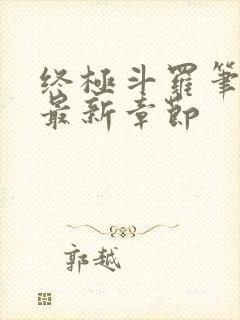 终極斗羅筆
最新章節
郭越